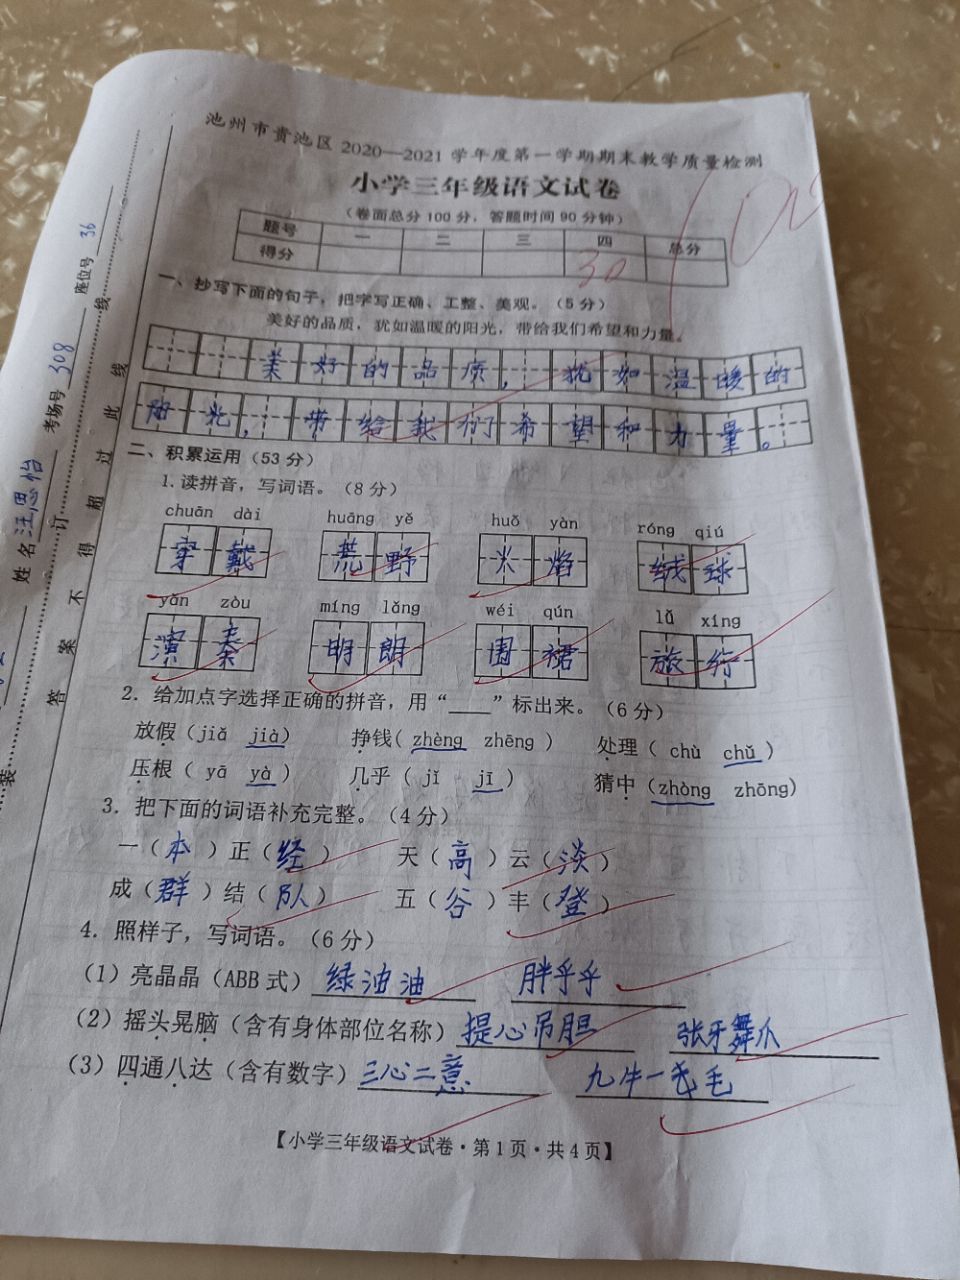 池州市贵池区 2020—2021 学年度第一学期期末教学质量检测
小学三年级语文试卷
（卷面总分 100 分，答题时间 90 分钟）
题号 一 二 三 四 总分
得分 30
100
一、抄写下面的句子，把字写正确、工整、美观。（5 分）
美好的品质，犹如温暖的阳光，带给我们希望和力量。
美好的品质，犹如温暖的
阳光，带给我们希望和力量。
二、积累运用（53 分）
1.读拼音，写词语。（8 分）
chuān dài huāng yě huǒ yàn róng qiú
穿戴 荒野 火焰 绒球
yǎn zòu míng lǎng wéi qún lǚ xíng
演奏 明朗 围裙 旅行
2．给加点字选择正确的拼音，用“____”标出来。（6 分）
放假（jiǎ jià） 挣钱（zhèng zhēng） 处理（chù chǔ）
压根（yā yà） 几乎（jǐ jī） 猜中（zhòng zhōng）
3．把下面的词语补充完整。（4 分）
一（本）正（经） 天（高）云（淡）
成（群）结（队） 五（谷）丰（登）
4．照样子，写词语。（6 分）
（1）亮晶晶（ABB 式）绿油油 胖乎乎
（2）摇头晃脑（含有身体部位名称）提心吊胆 张牙舞爪
（3）四通八达（含有数字）三心二意 九牛一毛
【小学三年级语文试卷·第 1 页·共 4 页】
座位号 36
考场号 308
姓名 汪思怡
装 订 线
答 案 不 得 超 过 此 线